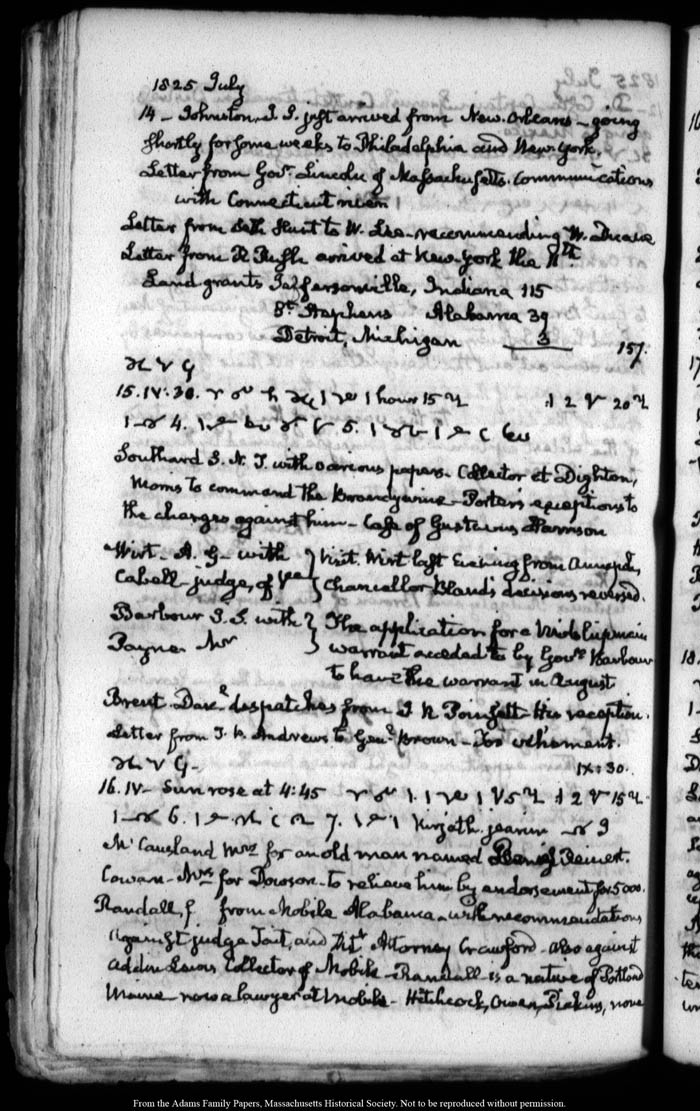 1825 July
14 – Johnston, J. S. just arrived from New-Orleans – going
shortly for some weeks to Philadelphia and New-York.
Letter from Govr. Lincoln of Massachusetts. Communications
with Connecticut river
Letter from Seth Hunt to W. Lee – recommending W. Duane
Letter from R Rush arrived at New-York the 11th
Land grants Jeffersonville, Indiana 115
St. Stephens Alabama 39
Detroit, Michigan 3 157.
15. IV:30. 1 hour 15 2 20
1 4. 1 5. 1 1
Southard S. N. J. with various papers. Collector at Dighton,
Morris to command the Brandywine – Porter's exceptions to
the charges against him – Case of Gustavus Harrison
Wirt – A. G – with } Visit. Wirt last Evening from Annaps,
Cabell – judge, of Va } Chancellor Bland's decisions reversed.
Barbour J. S. with } The application for a Midshipman
Payne Mr } warrant acceded to by Govr. Barbour
to have the warrant in August
Brent. Danl. despatches from J. R Poinsett – His reception.
Letter from T. P. Andrews to Genl. Brown – Too vehement.
IX:30.
16. IV – Sun rose at 4:45 1. 1 1 5 2 15
1 6. 1 7. 1 1 Kirjath-jearim 9
McCausland Mrs for an old man named Reinert.
Cowan – Mrs for Dowson – to relieve him by endorsement for 5000.
Randall, from Mobile Alabama – with recommendations
against judge Tait, and Dt. Attorney Crawford – also against
Addin Lewis Collector of Mobile – Randall is a native of Portland
Maine – now a lawyer at Mobile – Hitchcock, Owen, Pickens, none
From the Adams Family Papers, Massachusetts Historical Society. Not to be reproduced without permission.